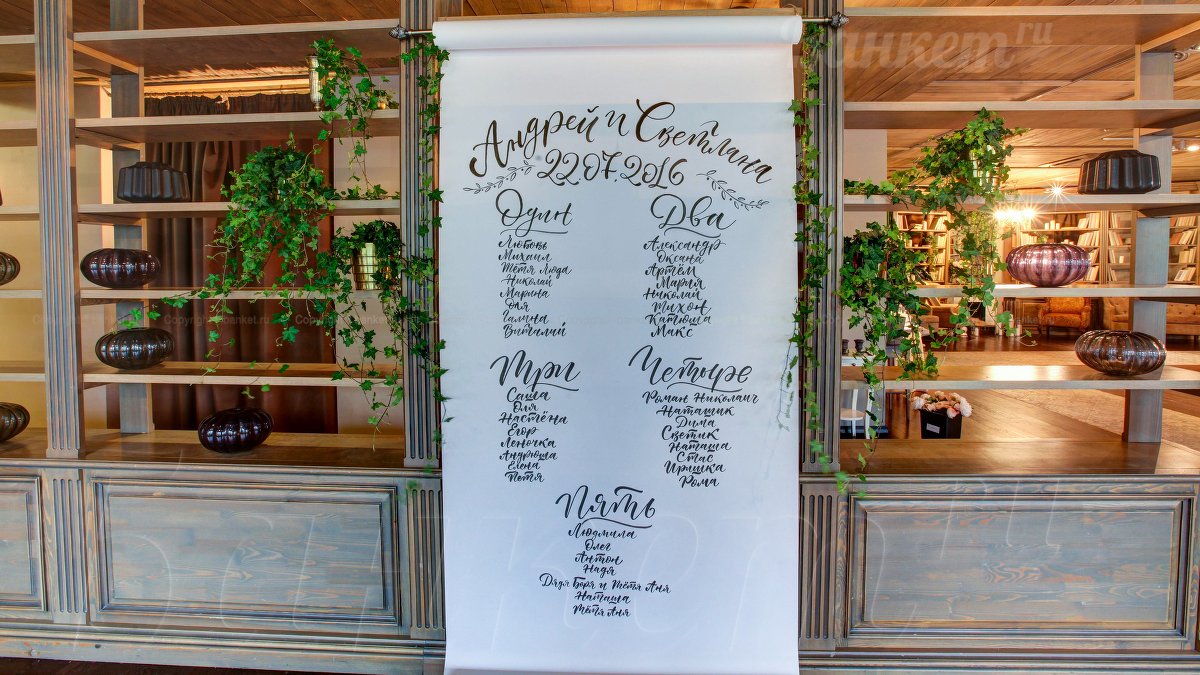 Банкет.ru
Андрей и Светлана
22.07.2016
Один
Любовь
Михаил
Тётя Люда
Николай
Марина
Оля
Галина
Виталий
Два
Александр
Оксана
Артём
Мария
Николай
Тихон
Катюша
Макс
Три
Саша
Оля
Настёна
Егор
Леночка
Андрюша
Елена
Петя
Четыре
Роман Николаич
Наташик
Дима
Светик
Наташа
Стас
Иришка
Рома
Пять
Людмила
Олег
Антон
Надя
Дядя Боря и Тётя Аня
Наташа
Тётя Аня